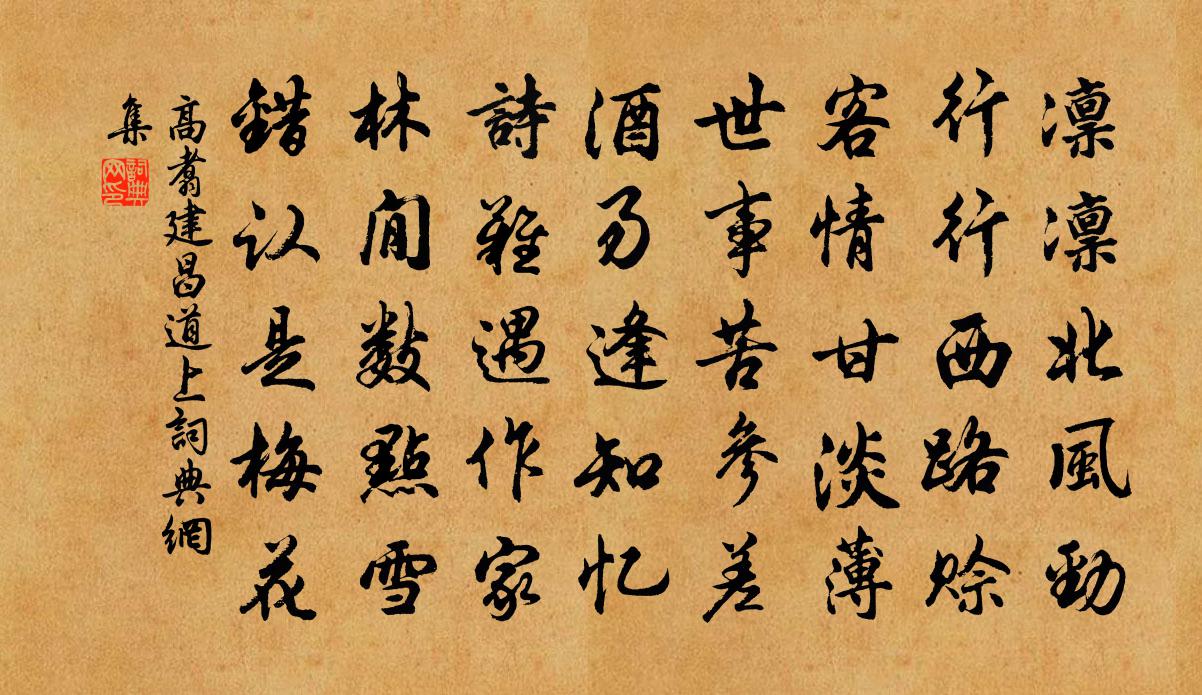 凛凛北風勁
行行西路賒
客情甘淡薄
世事苦參差
酒易逢知忆
詩難遇作家
林間數點雪
錯认是梅花
高翥建昌道上詞典網
集
詞典网印